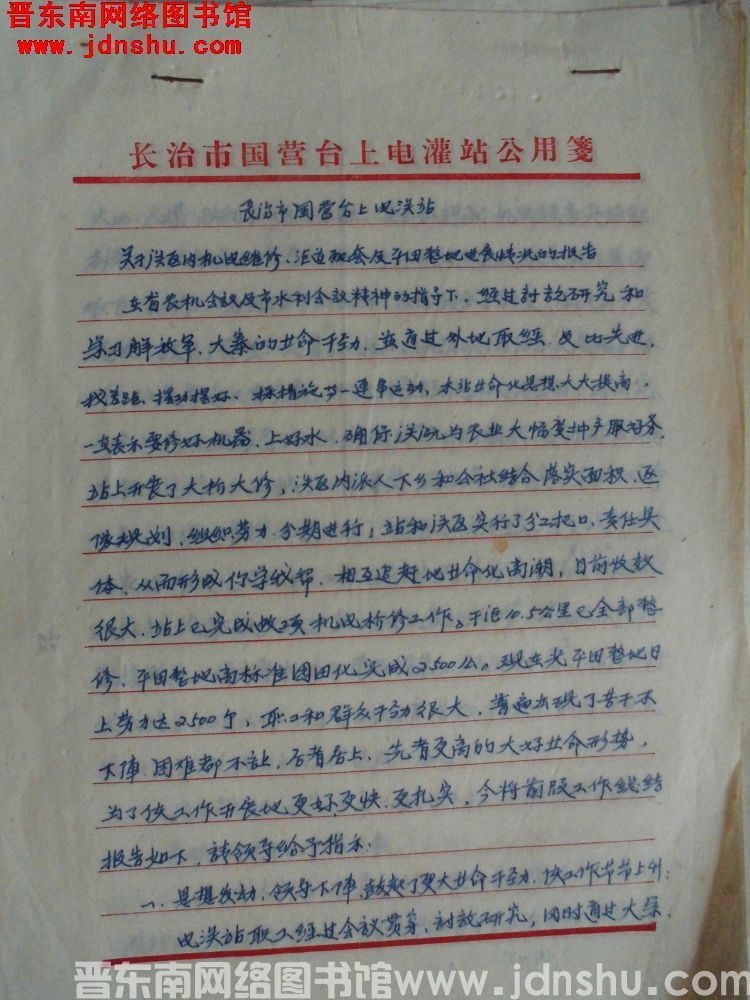 晋东南网络图书馆
www.jdnshu.com
长治市国营台上电灌站公用笺
长治市国营台上电灌站
关于灌区内机电维修、渠道配套及平田整地进展情况的报告
在省农机会议及市水利会议精神的指导下、经过討論研究和
学习解放军、大寨的革命干劲、並通过外地取經、反比先进、
找差距、摆功摆好、採措施等一連串运动、本站革命化思想大大提高、
一致表示要修好机器、上好水、确保灌区为农业大幅度增产服好务、
站上开展了大拆大修，灌区内派人下乡和公社结合落实面积、逐
隊规划、组织劳力、分期进行；站和灌区实行了分工把口、责任具
体、从而形成你学我帮、相互追赶地革命化高潮，目前收效
很大、站上已完成 项机电检修工作。干渠10.5公里已全部整
修、平田整地高标准园田化完成2500亩。现在光平田整地日
上劳力达2500个，职工和群众干劲很大，普遍出现了苦干不
下陣、困难都不讓、后者居上、先者更高的大好革命形势，
为了使工作开展地更好、更快、更扎实，今将前段工作總结
报告如下、請领导给予指示：
一、思想发动、领导下陣、鼓起了更大革命干劲、使工作节节上升：
电灌站职工经过会议贯彻，討論研究，同时通过大寨、
晋东南网络图书馆 www.jdnshu.com